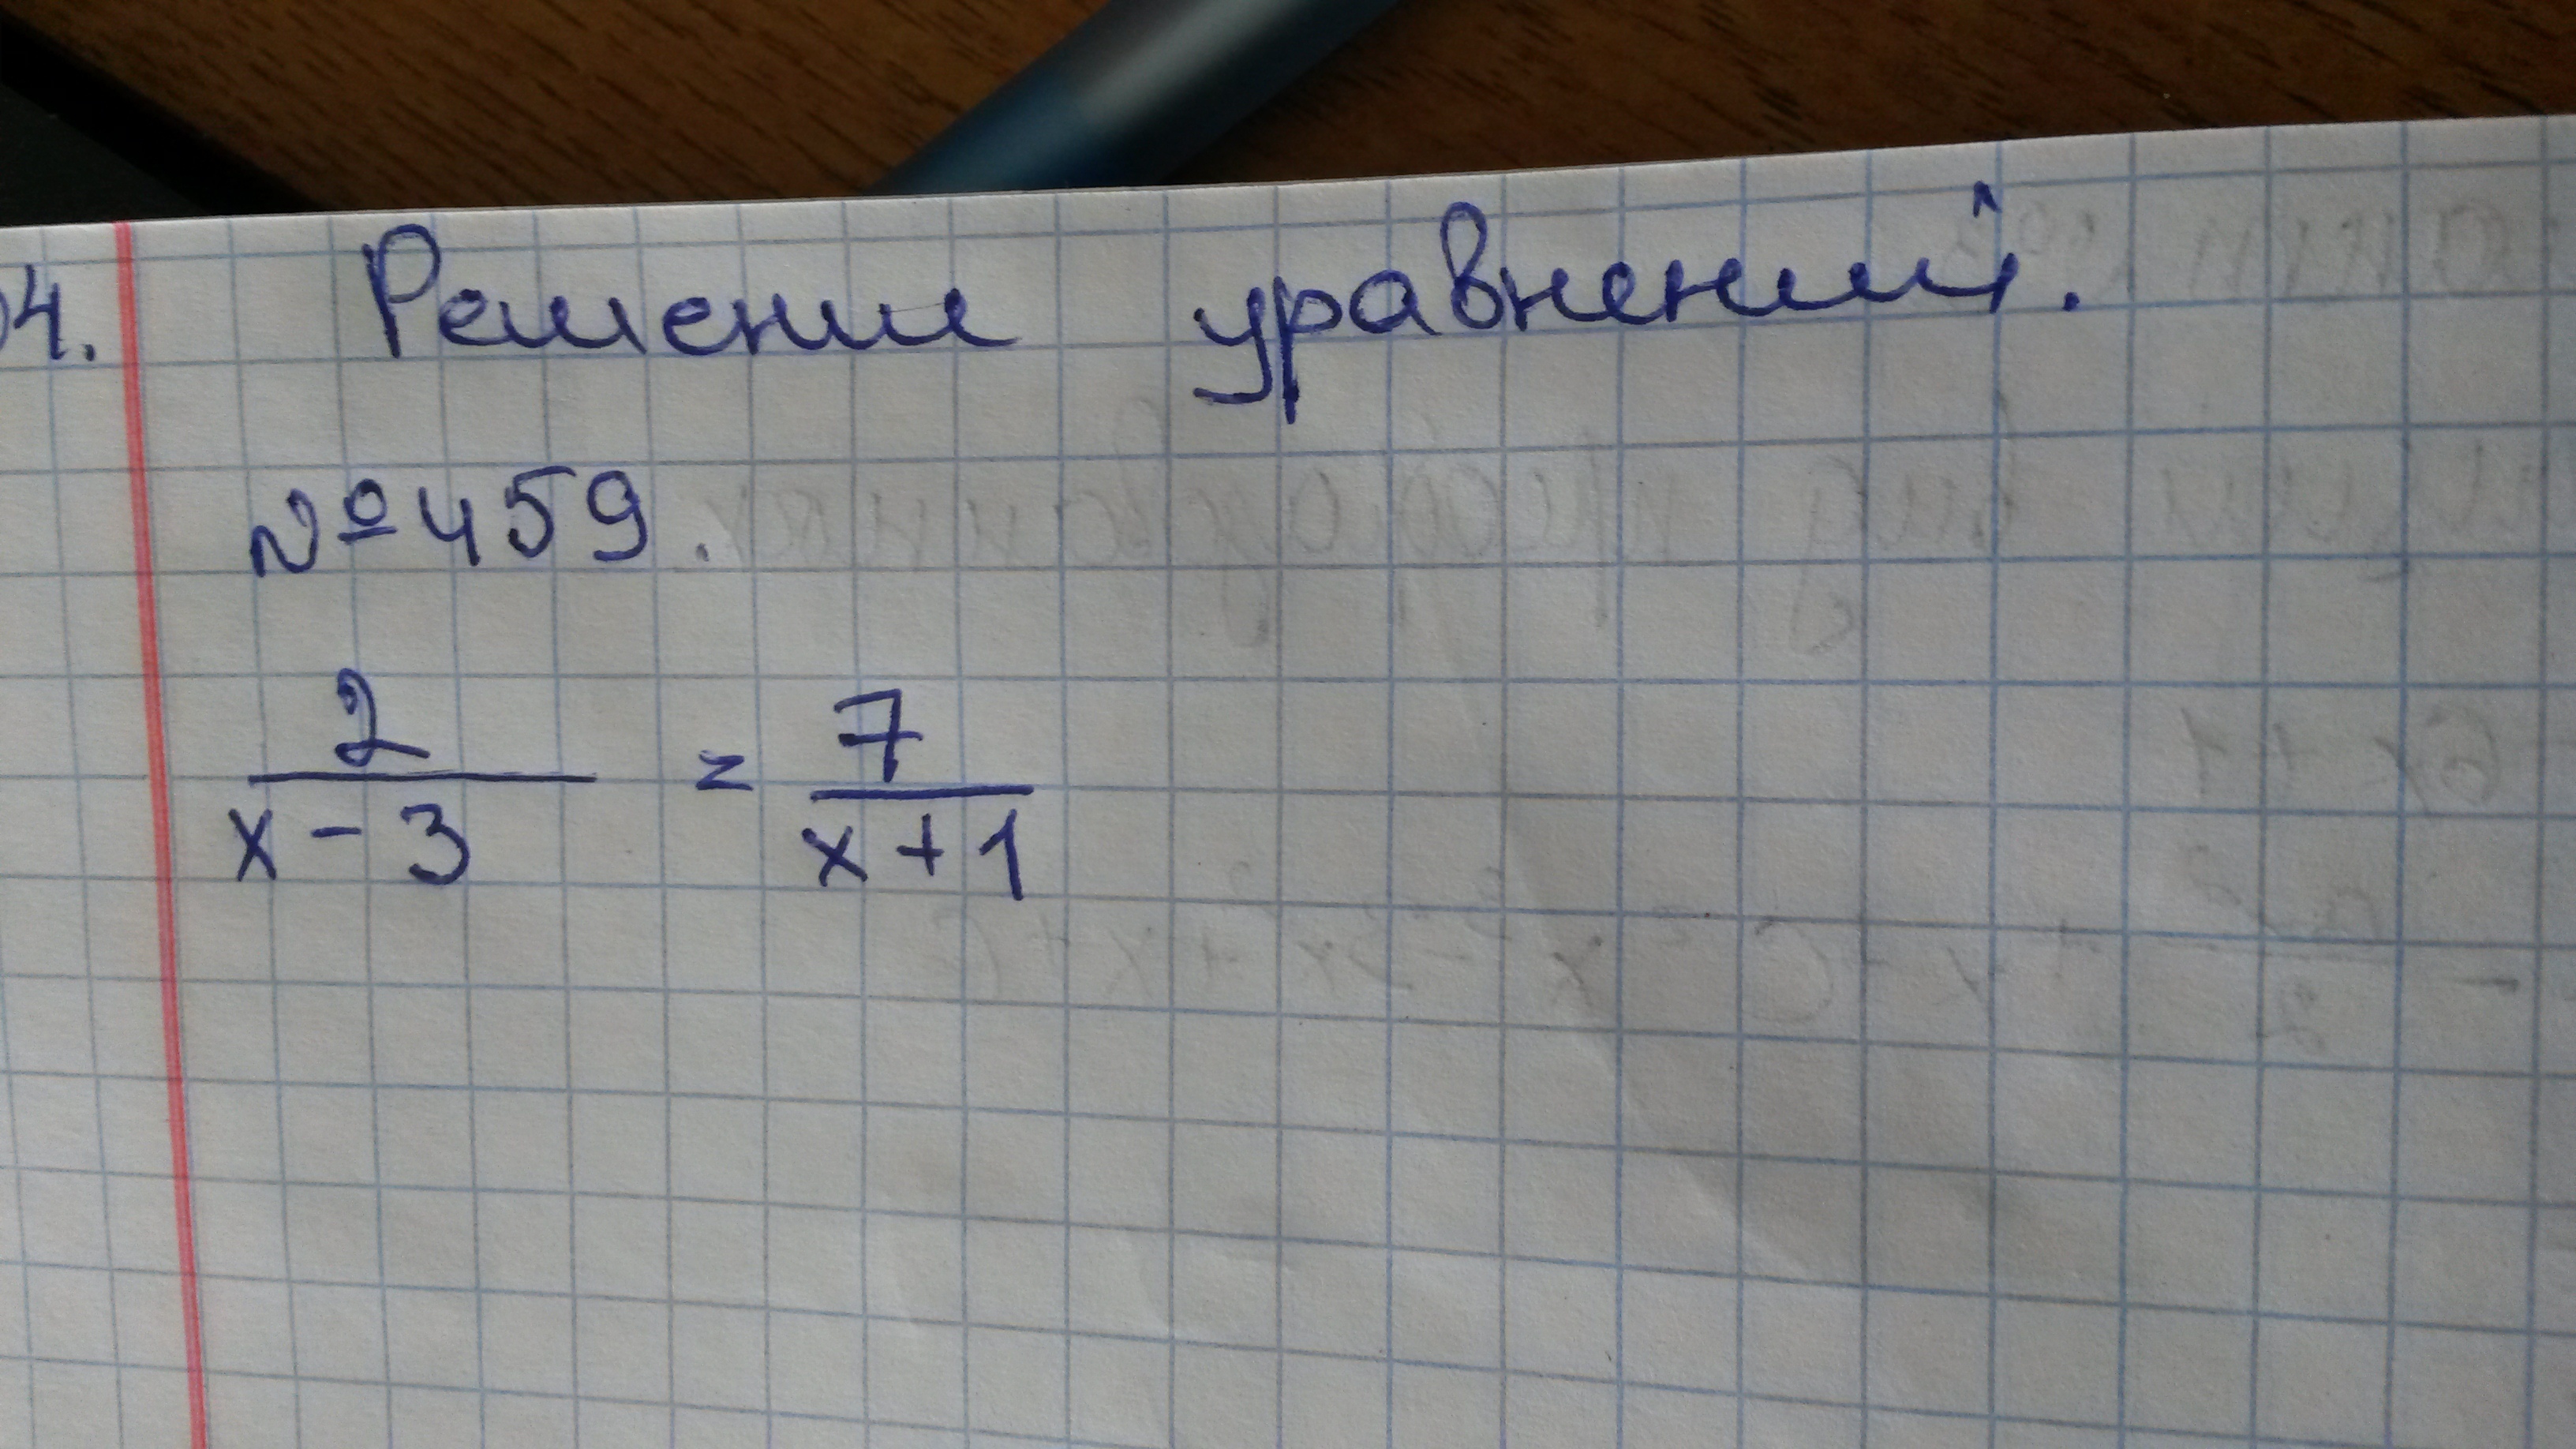 04. Решение уравнений.
№ 459.
2 / (x - 3) = 7 / (x + 1)